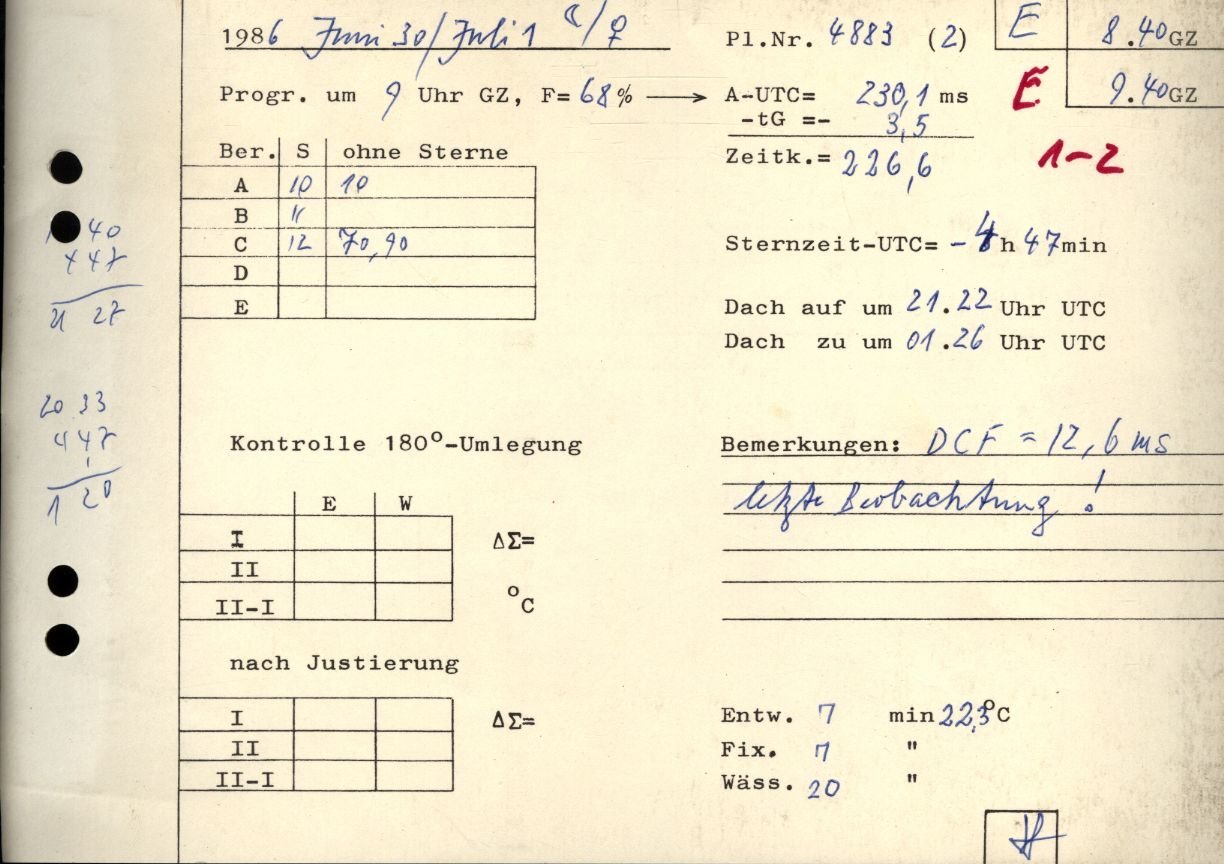 1986 Juni 30/Juli 1 ☾/♀ Pl.Nr. 4883 (2) E 8.40 GZ
Progr. um 9 Uhr GZ, F= 68% → A-UTC= 230,1 ms E 9.40 GZ
-tG =- 3,5
Ber. S ohne Sterne Zeitk.= 226,6 1-2
A 10 10
B 11
C 12 70,90 Sternzeit-UTC= -4h 47min
D
E
40
447
21 27
Dach auf um 21.22 Uhr UTC
Dach zu um 01.26 Uhr UTC
20 33
447
1 20
Kontrolle 180°-Umlegung Bemerkungen: DCF = 12,6 ms
letzte Beobachtung !
E W
I ΔΣ=
II
II-I °C
nach Justierung
I ΔΣ= Entw. 7 min 22,3°C
II Fix. 7 "
II-I Wäss. 20 "